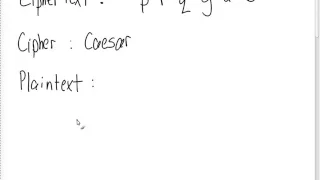 Ciphertext :
Cipher : Caesar
Plaintext :